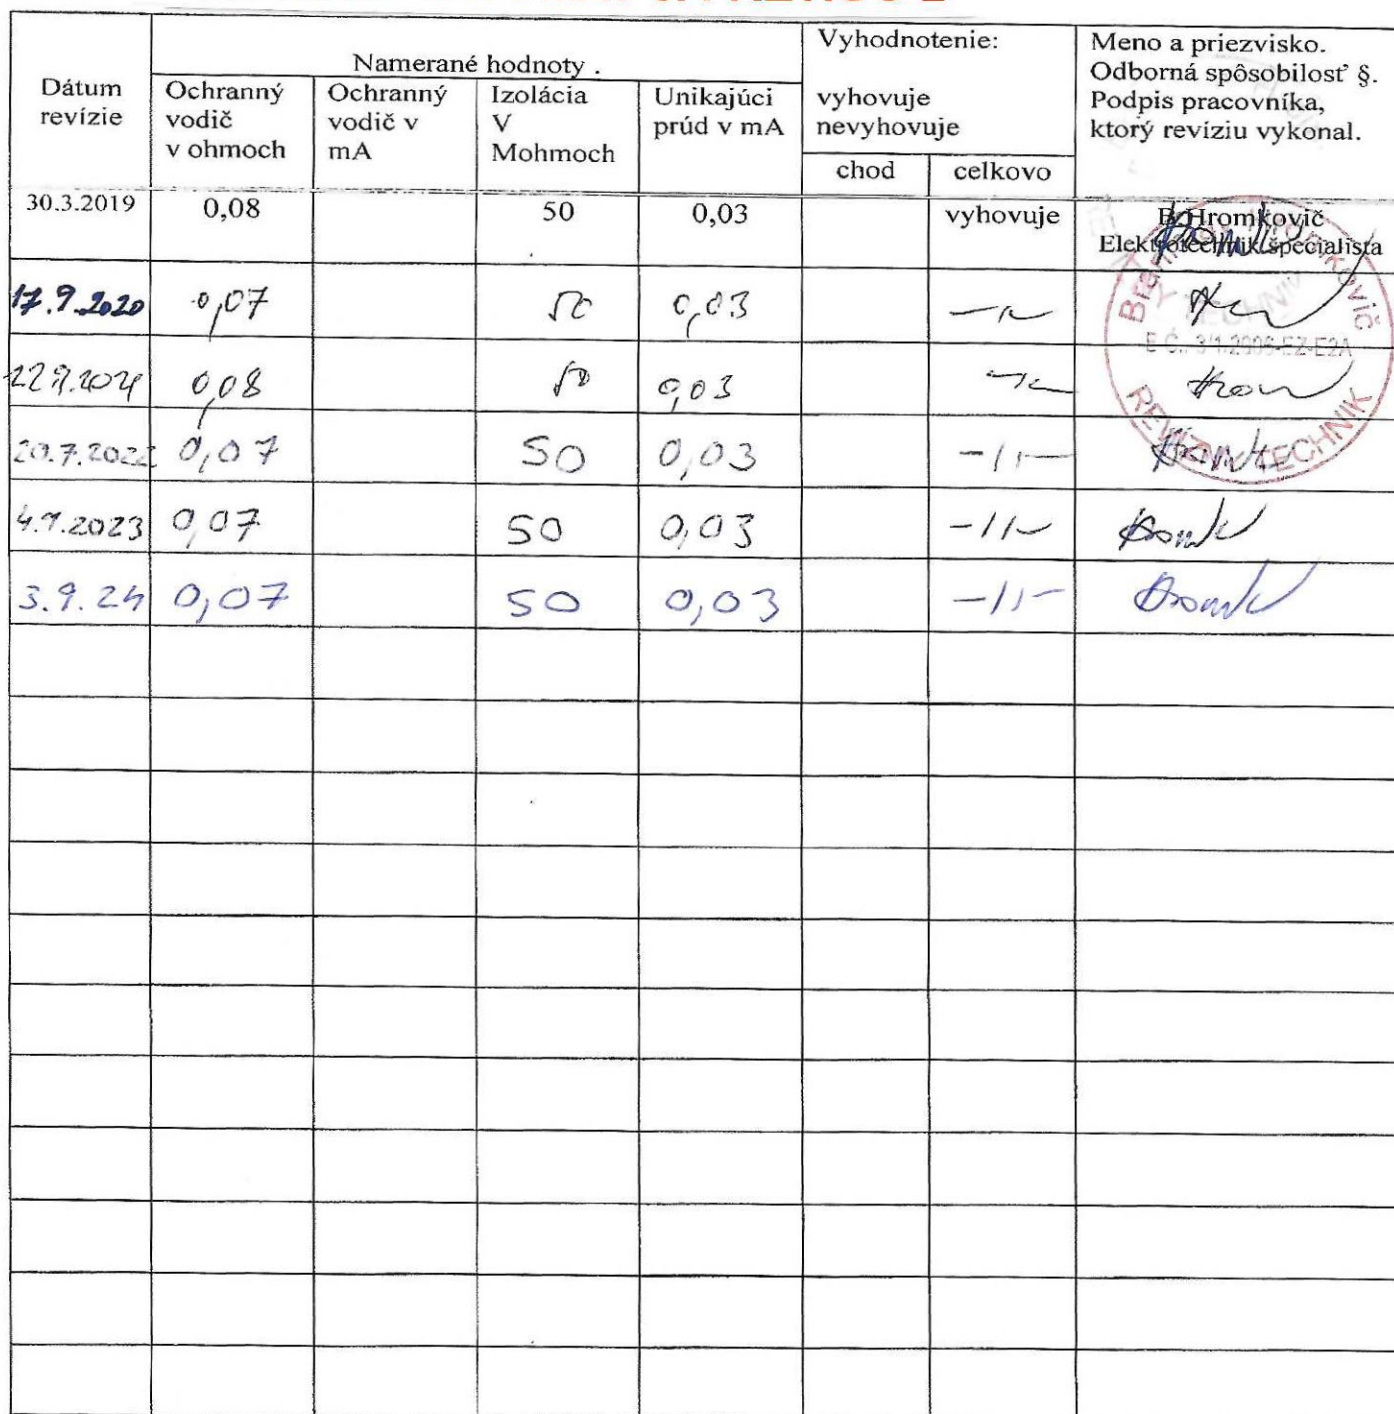 Dátum
revízie
Namerané hodnoty .
Ochranný
vodič
v ohmoch
Ochranný
vodič v
mA
Izolácia
V
Mohmoch
Unikajúci
prúd v mA
Vyhodnotenie:
vyhovuje
nevyhovuje
chod
celkovo
Meno a priezvisko.
Odborná spôsobilosť §.
Podpis pracovníka,
ktorý revíziu vykonal.
30.3.2019 0,08 50 0,03 vyhovuje B.Hromkovič
Elektrotechnik špecialista
17.9.2020 0,07 50 0,03 -||-
0,08 50 0,03 -||-
20.7.2022 0,07 50 0,03 -||-
4.9.2023 0,07 50 0,03 -||-
3.9.24 0,07 50 0,03 -||-
REVÍZNY TECHNIK